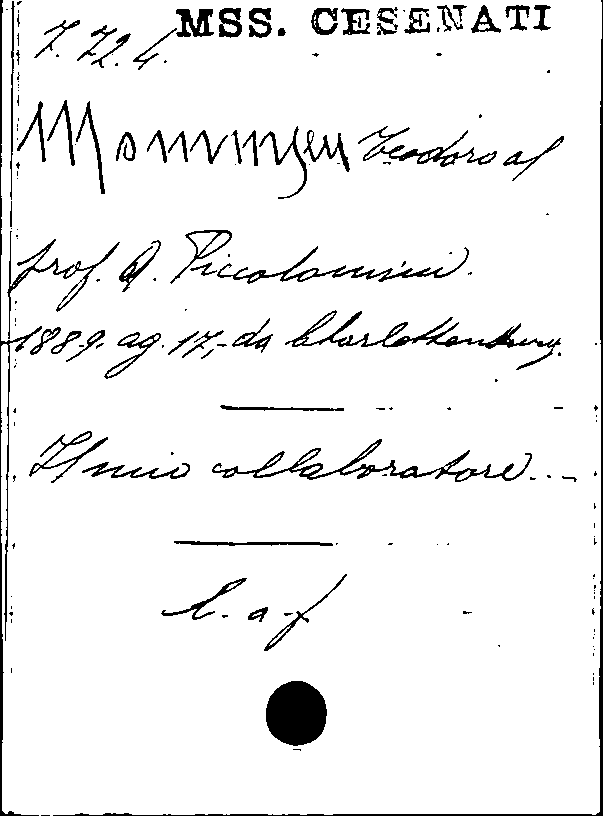 MSS. CESENATI
7.72.4.
Mommsen Teodoro al
prof. Q. Piccolomini.
1889. ag. 17,- da Charlottenburg.
Il mio collaboratore...
l. a. f